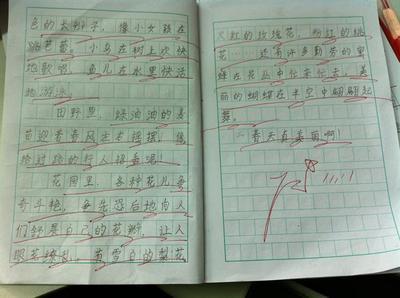 色的大辫子，像小女孩在
跳芭蕾。小鸟在树上欢快
地歌唱，鱼儿在水里快活
地游泳。
田野里，绿油油的麦
苗迎着春风左右摇摆，像
给过路的行人喜呢！
花园里，各种花儿争
奇斗艳，争先恐后地向人
们舒展自己的花瓣，让人
眼花缭乱。有雪白的梨花
火红的玫瑰花，粉红的桃
花……还有许多勤劳的蜜
蜂在花丛中忙来忙去，美
丽的蝴蝶在半空中翩翩起
舞。
春天真美丽啊！